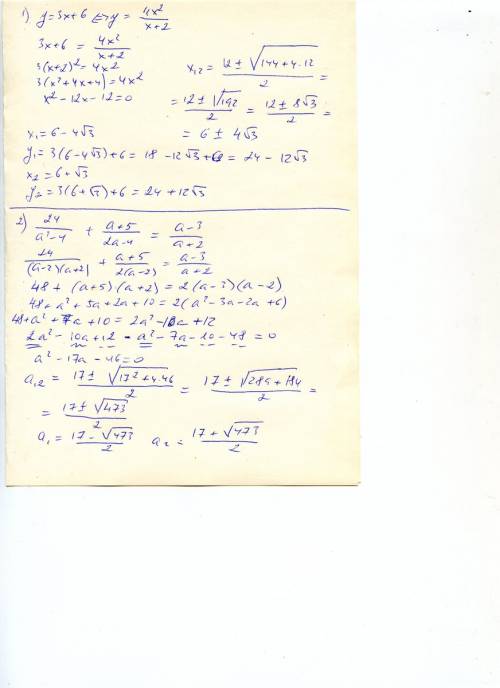 1) y = 3x+6 и y = 4x²/(x+2)
3x+6 = 4x²/(x+2)
3(x+2)² = 4x²
3(x²+4x+4) = 4x²
x² - 12x - 12 = 0
x₁,₂ = (12 ± √(144+4·12))/2 =
= (12 ± √192)/2 = (12 ± 8√3)/2 =
= 6 ± 4√3
x₁ = 6 - 4√3
y₁ = 3(6-4√3)+6 = 18 - 12√3 + 6 = 24 - 12√3
x₂ = 6+√3
y₂ = 3(6+√3)+6 = 24+12√3
2) 24/(a²-4) + (a+5)/(2a-4) = (a-3)/(a+2)
24/((a-2)(a+2)) + (a+5)/(2(a-2)) = (a-3)/(a+2)
48 + (a+5)(a+2) = 2(a-3)(a-2)
48 + a² + 5a + 2a + 10 = 2(a² - 3a - 2a + 6)
48 + a² + 7a + 10 = 2a² - 10a + 12
2a² - 10a + 12 - a² - 7a - 10 - 48 = 0
a² - 17a - 46 = 0
a₁,₂ = (17 ± √(17²+4·46))/2 = (17 ± √(289+184))/2 =
= (17 ± √473)/2
a₁ = (17 - √473)/2 a₂ = (17 + √473)/2